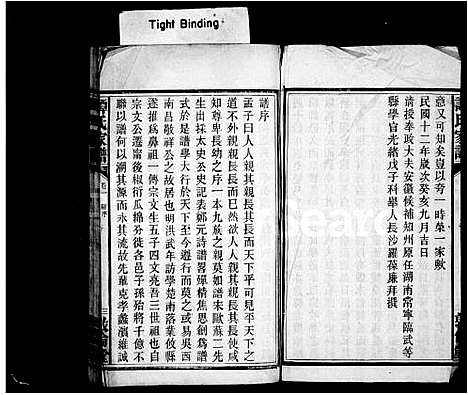 Tight Binding
意又可知矣豈以夸一時榮一家歟
民國十二年歲次癸亥九月吉日
請授奉政大夫安徽候補知州原任湖南常寧臨武等
縣學官光緒戊子科舉人長沙羅葆廉拜撰
譜序
孟子曰人人親其親長其長而天下平可見平天下之
道不外親親長長而已然欲人人親其親長其長使咸
知尊卑長幼之序一本九族之親莫如譜宋歐蘇二先
生出採太史公史記表鄭元詩譜畧殫精焦思創為譜
式於是譜學大行於天下至今遵行而莫之或易吳西
南昌敬祥公之故居也明洪武年訪學楚南落業攸縣
遂推為鼻祖一傳宗文生五子四文亮吾三世祖也自
宗文公遷甯後椒衍瓜綿分徙各邑子孫殆將千億不
聯以譜何以溯其源而永其流故先輩克孝蠡濱維誠
家譜
卷一